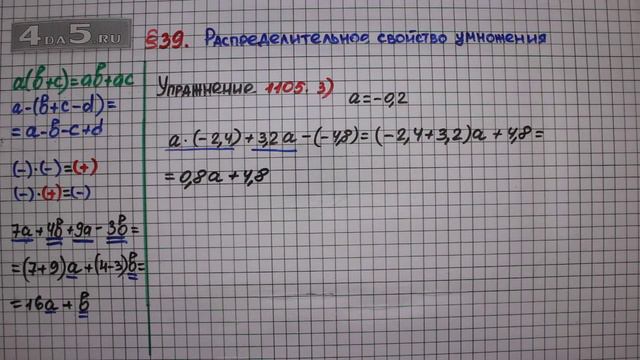 4DA5.RU
§39. Распределительное свойство умножения
a(b+c)=ab+ac
a-(b+c-d)=
=a-b-c+d
(-)·(-)=(+)
(-)·(+)=(-)
7a+4b+9a-3b=
=(7+9)a+(4-3)b=
=16a+b
Упражнение 1105. 3)
a=-0,2
a·(-2,4)+3,2a-(-4,8)=(-2,4+3,2)a+4,8=
=0,8a+4,8